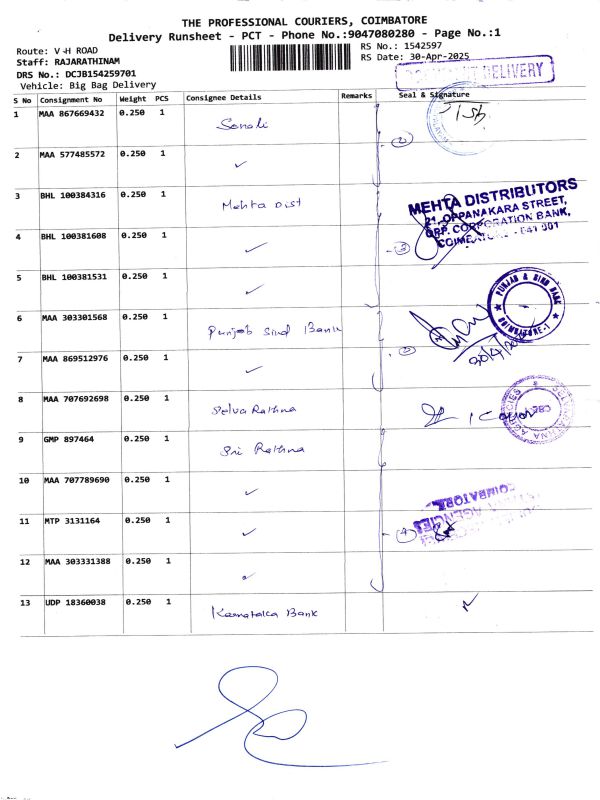 THE PROFESSIONAL COURIERS, COIMBATORE
Delivery Runsheet - PCT - Phone No.:9047080280 - Page No.:1
Route: V-H ROAD
Staff: RAJARATHINAM
DRS No.: DCJB154259701
Vehicle: Big Bag Delivery
RS No.: 1542597
RS Date: 30-Apr-2025
DELIVERY
S No Consignment No Weight PCS Consignee Details Remarks Seal & Signature
1 MAA 867669432 0.250 1 Sonali
2 MAA 577485572 0.250 1 ✓
(2)
3 BHL 100384316 0.250 1 Mehta Dist
MEHTA DISTRIBUTORS
21, OPPANAKARA STREET,
OPP. CORPORATION BANK,
COIMBATORE - 641 001
4 BHL 100381608 0.250 1 ✓
(3)
5 BHL 100381531 0.250 1 ✓
PUNJAB & SIND BANK
COIMBATORE-1
6 MAA 303301568 0.250 1 Punjab Sind Bank
7 MAA 869512976 0.250 1 ✓
(2)
8 MAA 707692698 0.250 1 Selva Rathna
SELVARATHNA AGENCIES
CBE
9 GMP 897464 0.250 1 Sri Rathna
10 MAA 707789690 0.250 1 ✓
COIMBATORE
AGENCIES
11 MTP 3131164 0.250 1 ✓
(4)
12 MAA 303331388 0.250 1 ✓
13 UDP 18360038 0.250 1 Karnataka Bank